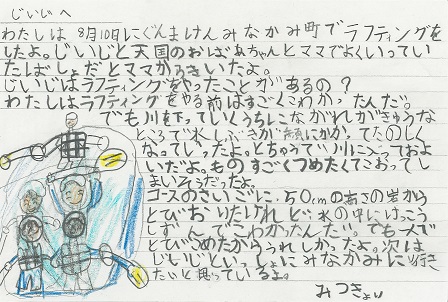 じいじへ
わたしは8月10日にぐんまけんみなかみ町でラフティングを
したよ。じいじと天国のおばあちゃんとママでよくいってい
たばしょだとママからきいたよ。
じいじはラフティングをやったことがあるの?
わたしはラフティングをやる前はすごくこわかったんだ。
でも川を下っていくうちにながれがきゅうな
ところで水しぶきが顔にかかってたのしく
なっていったよ。とちゅうで川に入っておよ
いだよ。ものすごくつめたくてこおってし
まいそうだったよ。
コースのさいごに、50cmの高さの岩から
とびおりたけれど、水の中にけっこう
しずんでこわかったんだ。でも一人で
とびこめたからうれしかったよ。次は
じいじといっしょにみなかみに行き
たいと思っているよ。
みつきより